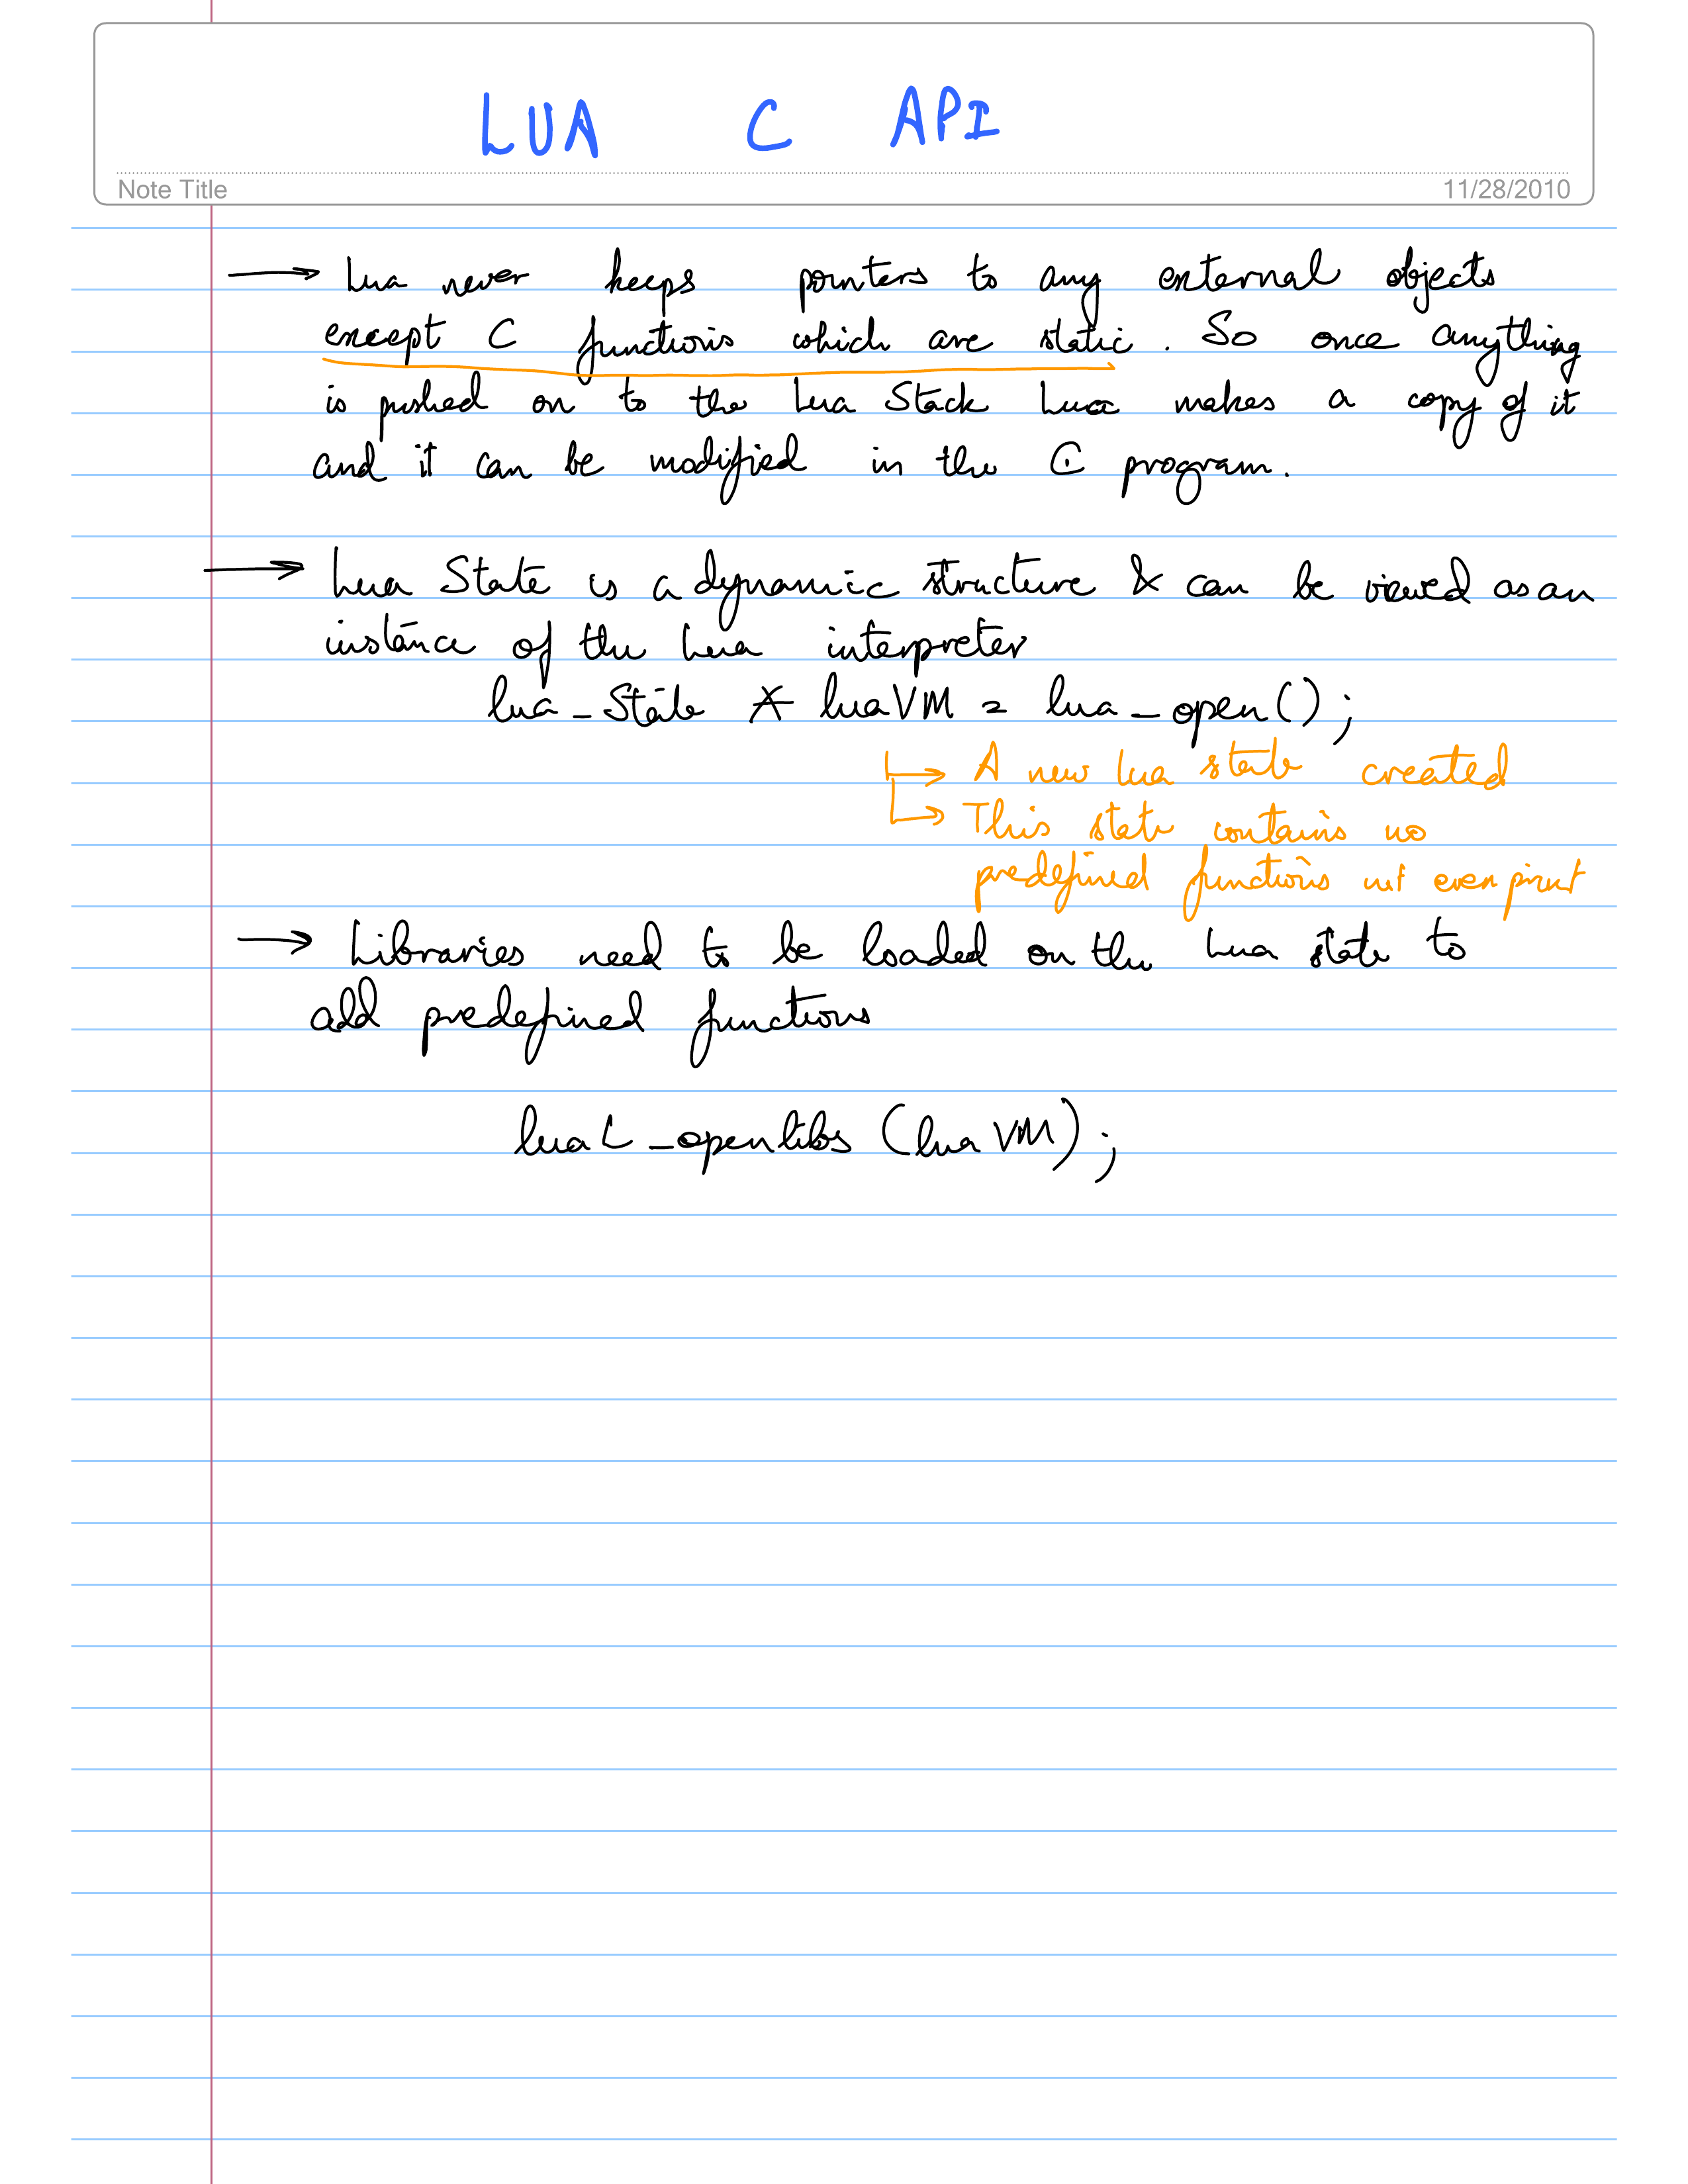 LUA C API
Note Title
11/28/2010
→ Lua never keeps pointers to any external objects
except C functions which are static. So once anything
is pushed on to the Lua Stack Lua makes a copy of it
and it can be modified in the C program.
→ Lua State is a dynamic structure & can be viewed as an
instance of the Lua interpreter
lua_State * luaVM = lua_open();
→ A new lua state created
→ This state contains no
predefined functions not even print
→ Libraries need to be loaded on the Lua state to
add predefined functions
luaL_openlibs (luaVM);